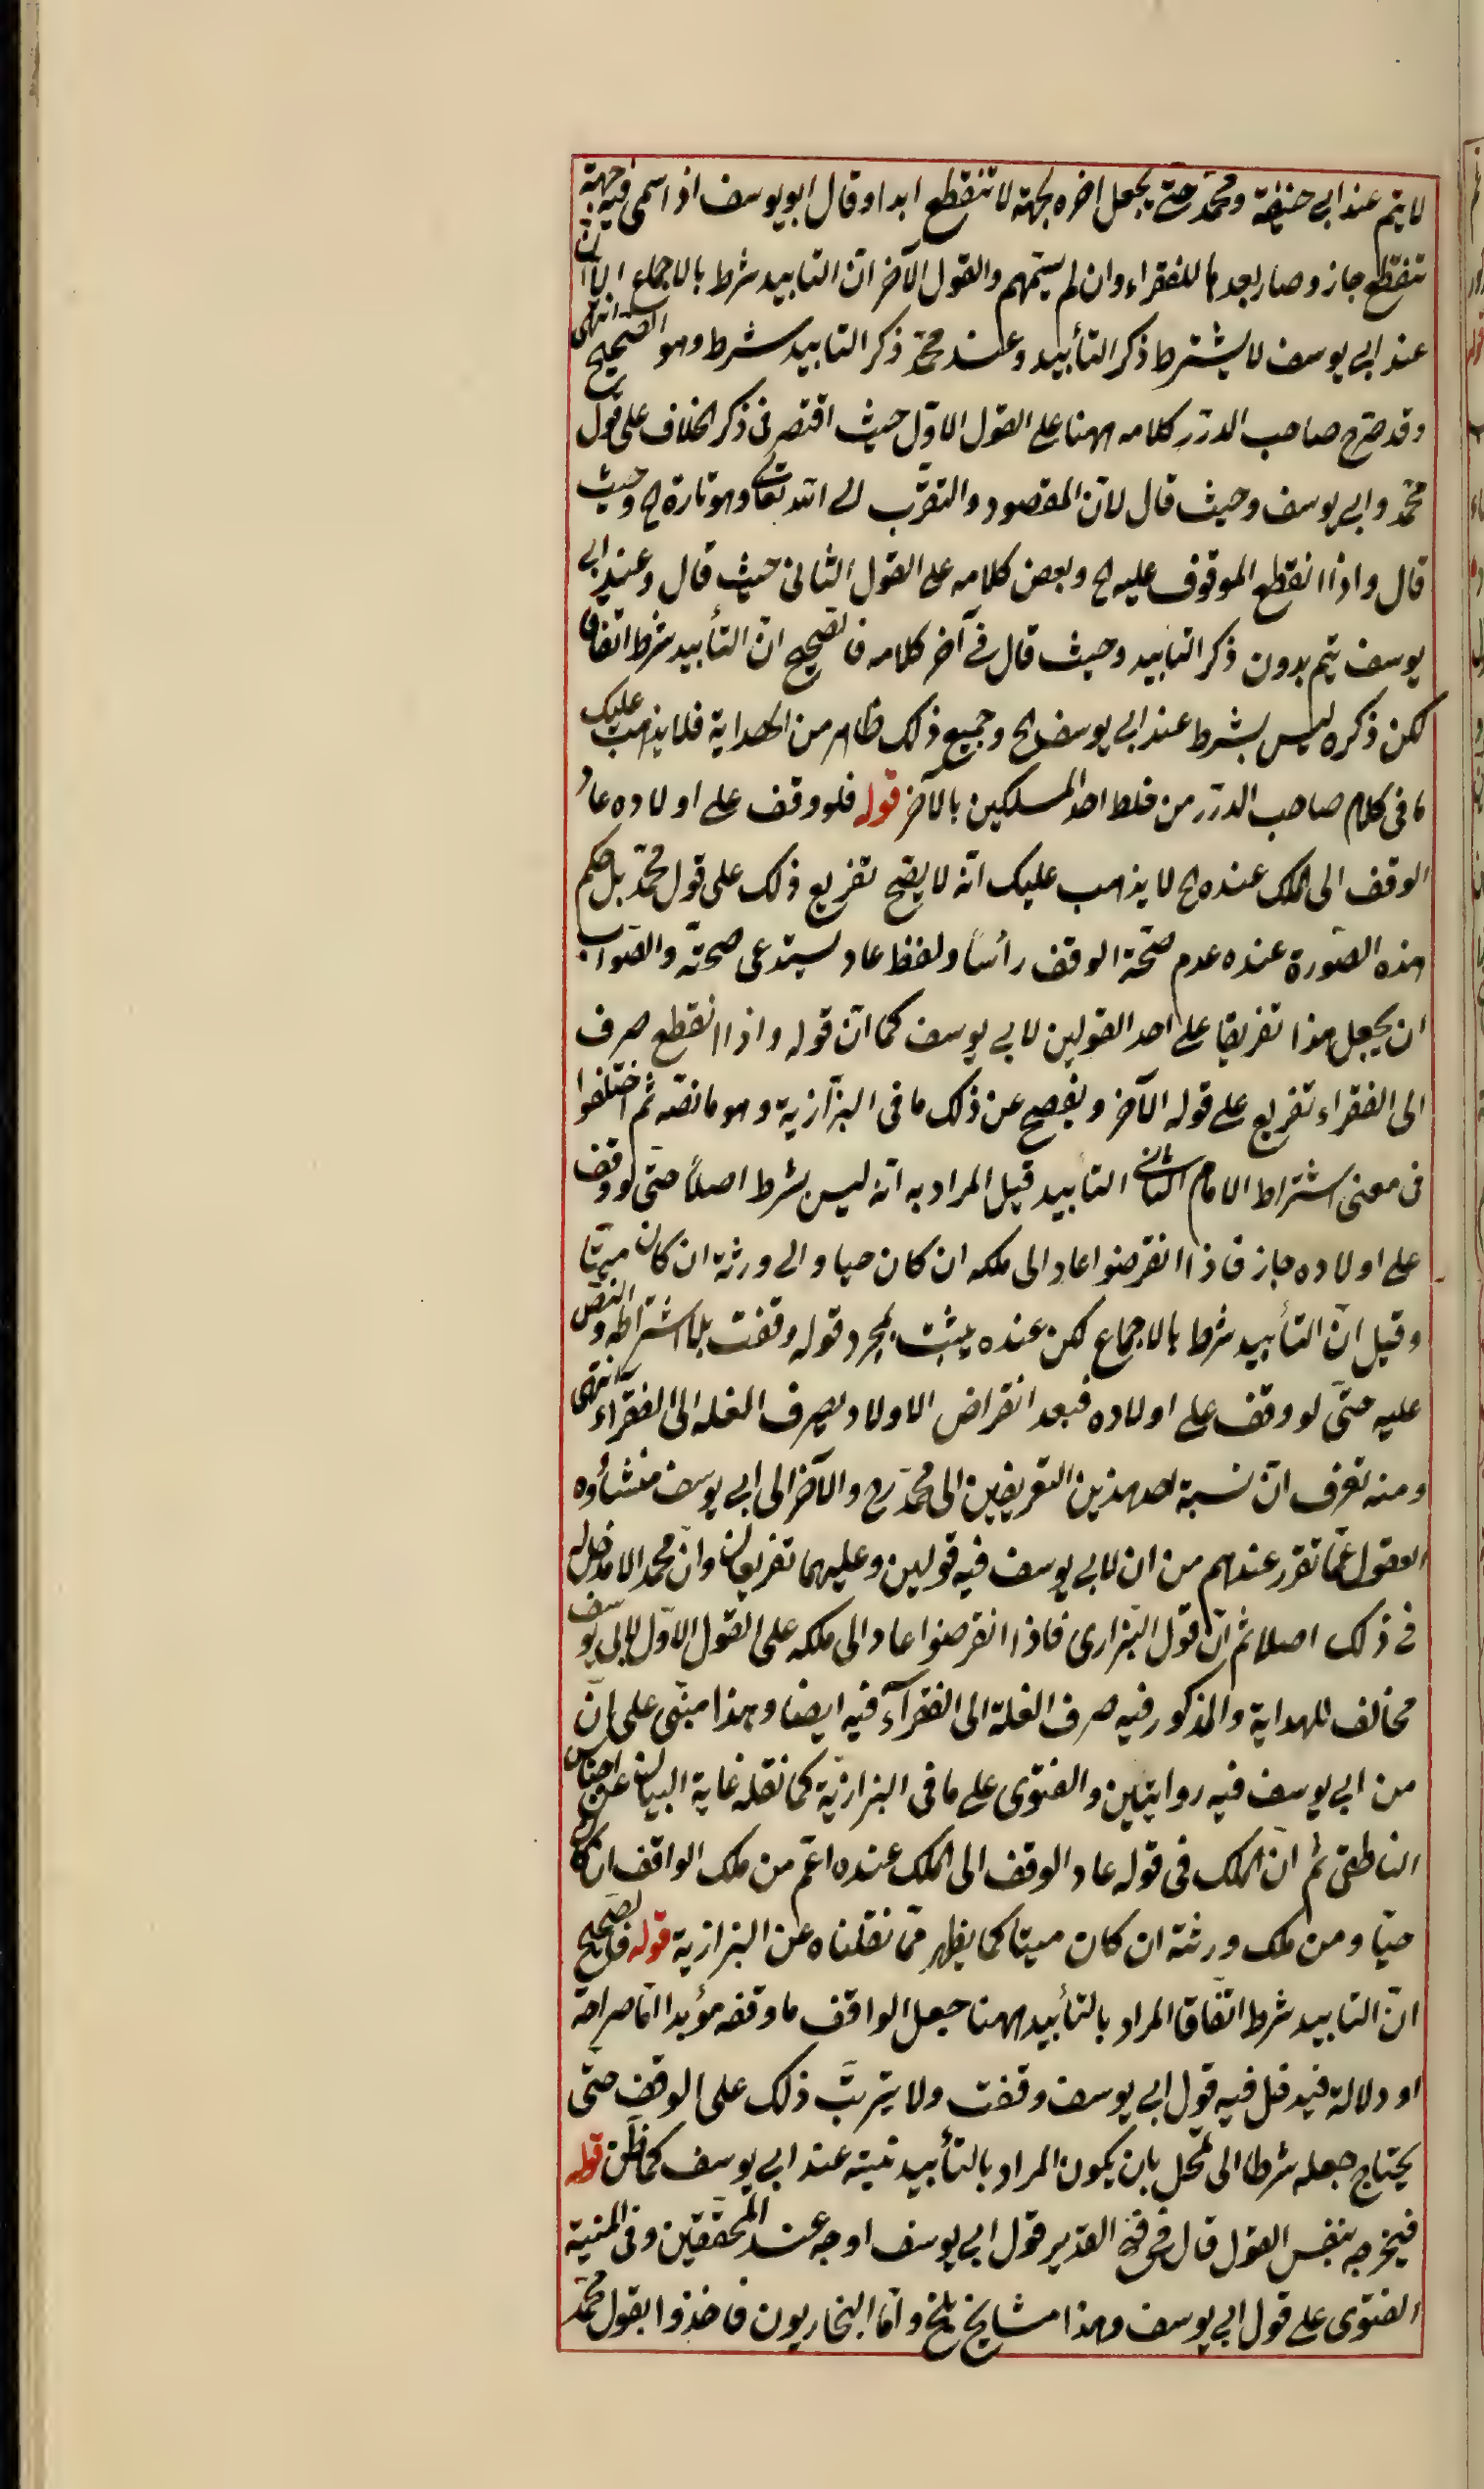 لا يتم عند ابي حنيفة ومحمد حتى يجعل اخره لجهة لا تنقطع ابدا وقال ابو يوسف اذا سمى فيه جهة
تنقطع جاز وصار بعدها للفقراء وان لم يسمهم والقول الآخر انّ التابيد شرط بالاجماع الا انّ
عند ابي يوسف لا يشترط ذكر التأبيد وعند محمد ذكر التابيد شرط وهو الصحيح انتهى
وقد خرج صاحب الدرر كلامه ههنا على القول الاوّل حيث اقتصر فى ذكر الخلاف على قول
محمّد وابي يوسف وحيث قال لانّ المقصود والتقرّب الى الله تعالى وهو تارة الخ وحيث
قال واذا انقطع الموقوف عليه الخ وبعض كلامه على القول الثانى حيث قال وعند ابي
يوسف يتم بدون ذكر التابيد وحيث قال في آخر كلامه فالصحيح انّ التأبيد شرط اتفاقا
لكن ذكره ليس بشرط عند ابي يوسف الخ وجميع ذلك ظاهر من الهداية فلا يذهب عليك
ما فى كلام صاحب الدرّر من خلط احد المسلكين بالآخر قوله فلو وقف على اولاده عاد
الوقف الى الملك عنده الخ لا يذهب عليك انّه لا يصّح تفريع ذلك على قول محمّد بل حكم
هذه الصّورة عنده عدم صحّة الوقف رأساً ولفظ عاد يستدعى صحتّه والصّواب
ان يجعل هذا تفريعا على احد القولين لابي يوسف كما انّ قوله واذا انقطع صرف
الى الفقراء تفريع على قوله الآخر ويفصح عن ذلك ما فى البزّازية وهو ما نصّه ثم اختلفوا
فى معنى اشتراط الامام الثانى التابيد قيل المراد به انه ليس بشرط اصلاً حتى لو وقف
على اولاده جاز فاذا انقرضوا عاد الى ملكه ان كان حيا والى ورثة ان كان ميّتا
وقيل انّ التأبيد شرط بالاجماع لكن عنده يثبت بمجرد قوله وقفت بلا اشتراطه والنصّ
عليه حتىّ لو وقف على اولاده فبعد انقراض الاولاد يصرف الغله الى الفقراء انتهى
ومنه تعرف انّ نسبة احد هذين التفريعين الى محمّد رح والآخر الى ابي يوسف منشأوه
الغفول عمّا تقرر عندهم من ان لابي يوسف فيه قولين وعليهما تفريعان وانّ محمد الا مدخل له
فى ذلك اصلا ثم انّ قول البزازى فاذا انقرضوا عاد الى ملكه على القول الاوّل لابي يوسف
مخالف للهداية والمذكور فيه صرف الغلة الى الفقرآء فيه ايضا وهذا مبنّى على انّ
من ابي يوسف فيه روايتين والفتوى على ما فى البزازيّة كما نقله غاية البيان عن اجناس
الناطفى ثم انّ الملك فى قوله عاد الوقف الى الملك عنده اعّم من ملك الواقف ان كان
حيّا ومن ملك ورثته ان كان ميتا كما يظهر ممّا نقلناه عن البزازية قوله فالصحيح
انّ التابيد شرط اتفّاقا المراد بالتأبيد ههنا جعل الواقف ما وقفه مؤبدا امّا صراحة
او دلالة فيدخل فيه قول ابي يوسف وقفت ولا يترتبّ ذلك على الوقف حتّى
يحتاج جعله شرطا الى تمحّل بان يكون المراد بالتأبيد نيته عند ابي يوسف كما ظنّ قوله
فيخرجه بنفس القول قال فى فتح القدير قول ابي يوسف اوجه عند المحققين وفى المنية
الفتوى على قول ابي يوسف وهذا مشايخ بلخ وامّا البخاريون فاخذوا بقول محمّد